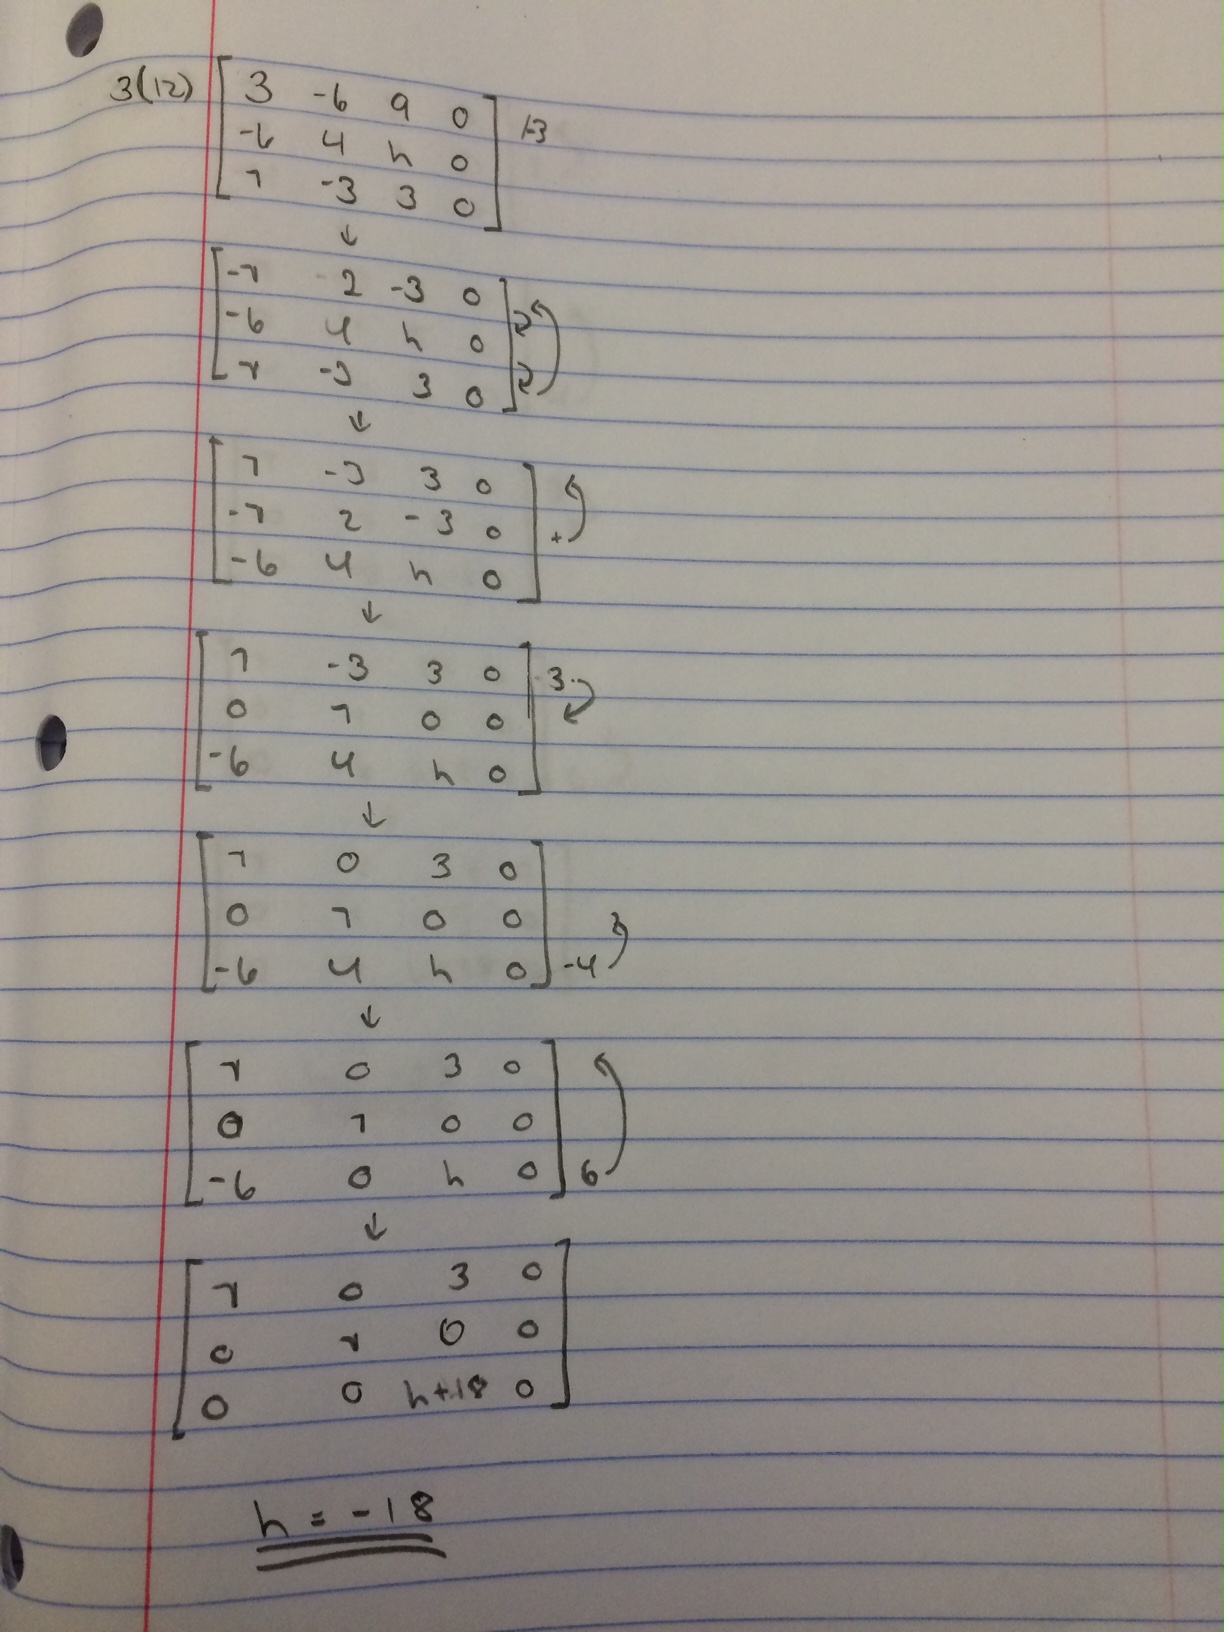 3(12) [ 3 -6 9 0 ]
-6 4 h 0
7 -3 3 0
↓
[ -7 2 -3 0 ]
-6 4 h 0
7 -3 3 0
↓
[ 7 -3 3 0 ]
-7 2 -3 0 +
-6 4 h 0
↓
[ 7 -3 3 0 ] 3
0 7 0 0
-6 4 h 0
↓
[ 7 0 3 0 ]
0 7 0 0
-6 4 h 0 -4
↓
[ 7 0 3 0 ]
0 7 0 0
-6 0 h 0 6
↓
[ 7 0 3 0 ]
0 7 0 0
0 0 h+18 0
h = -18